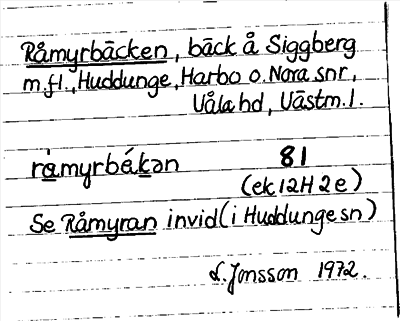 Råmyrbäcken, bäck å Siggberg
m.fl., Huddunge, Harbo o. Nora snr,
Våla hd, Västm.l.
ràmyrbékən 81
(ek 12H 2e)
Se Råmyran invid (i Huddunge sn)
L. Jonsson 1972.